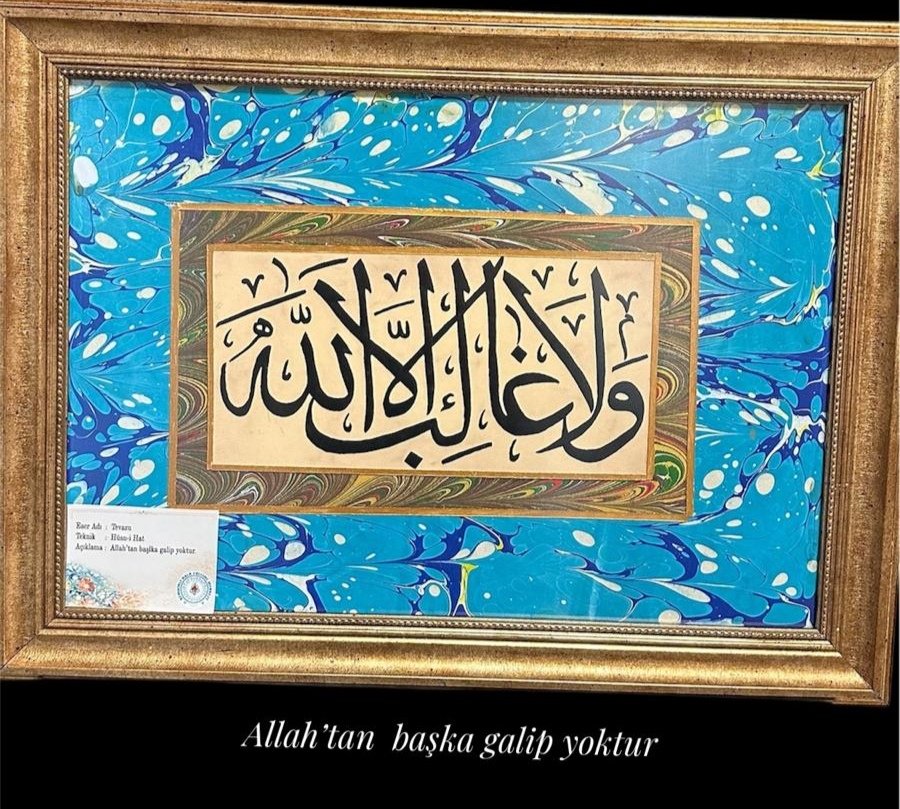 ولا غالب إلا الله
Eser Adı : Tevazu
Teknik : Hüsn-i Hat
Açıklama : Allah'tan başka galip yoktur
Allah’tan başka galip yoktur